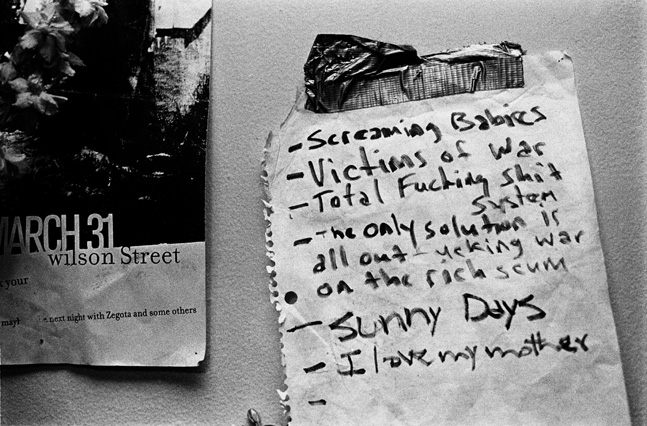 MARCH 31
wilson Street
your
next night with Zegota and some others
- Screaming Babies
- Victims of War
- Total Fucking shit
system
- The only solution is
all out ucking war
on the rich scum
- Sunny Days
- I love my mother
-